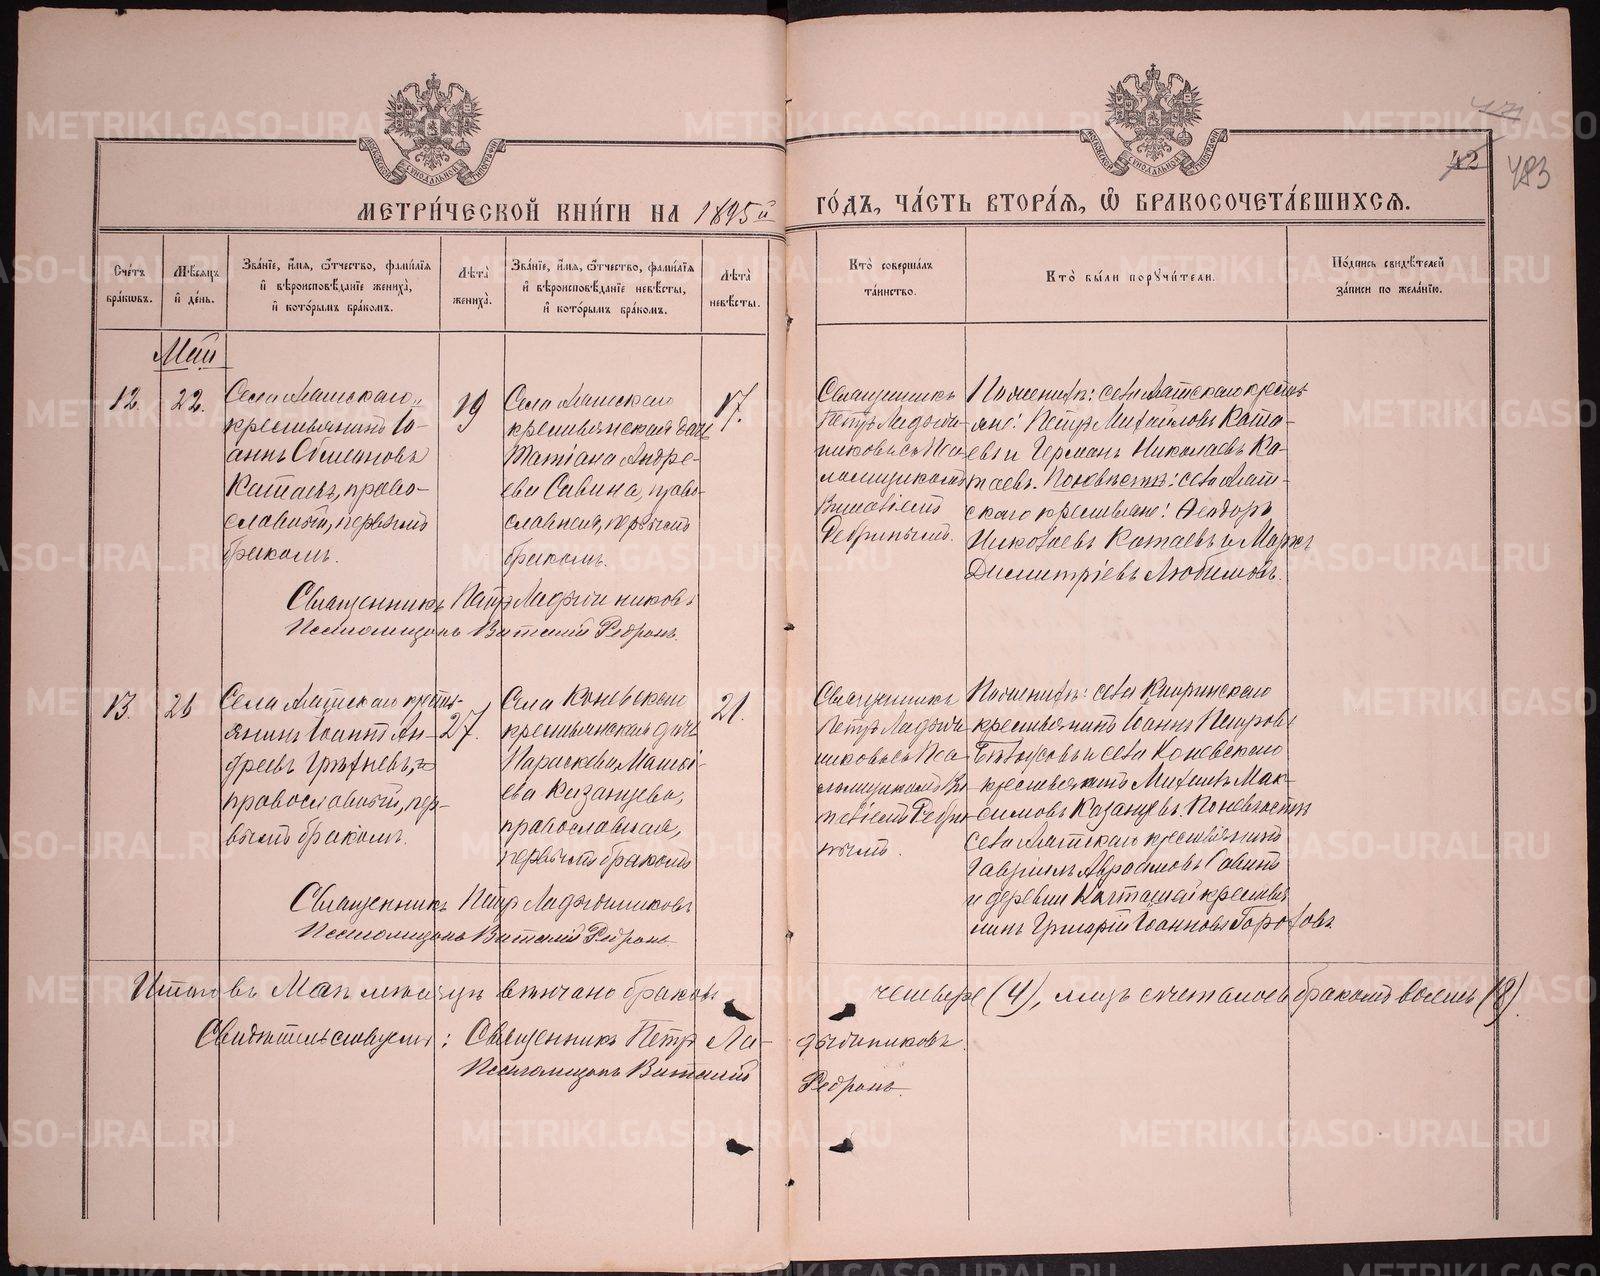 42
483
МЕТРИ́ЧЕСКОЙ КНИ́ГИ НА 1895й
ГО́ДЪ, ЧА́СТЬ ВТОРА́Ѧ, Ѽ БРАКОСОЧЕТА́ВШИХСѦ.
Сче́тъ бра́кѡвъ.
Мѣ́сѧцъ и҆ де́нь.
Зва́нїе, и҆́мѧ, ѻ҆́тчество, фамі́лїѧ и҆ вѣроисповѣ́данїе жениха̀, и҆ кото́рымъ бра́комъ.
Лѣ́та жениха̀.
Зва́нїе, и҆́мѧ, ѻ҆́тчество, фамі́лїѧ и҆ вѣроисповѣ́данїе невѣ́сты, и҆ кото́рымъ бра́комъ.
Лѣ́та невѣ́сты.
Кто̀ соверша́лъ та́инство.
Кто̀ бы́ли порꙋчи́тели.
По́дпись свидѣ́телей за́писи по жела́нїю.
Май
12.
22.
Села
крестьянинъ Іо-
аннъ
Катаевъ, право-
славный, первымъ
бракомъ.
19
Села
крестьянская дочь
Татіана Андре-
ева Савина, право-
славная, первымъ
бракомъ.
17.
Священникъ
Петръ Ладыж-
никовъ съ Пса-
ломщикомъ
Виталіемъ
По женихѣ: села кресть-
яне: Петръ Михайловъ Ката-
евъ и Германъ Николаевъ Ка-
таевъ. По невѣстѣ: села
скаго крестьяне: Ѳеодоръ
Николаевъ Катаевъ и Маркъ
Димитріевъ Любимовъ.
Священникъ Петръ Ладыжниковъ
Псаломщикъ Виталій
13.
26
Села кресть-
янинъ Іоаннъ Ан-
дреевъ
православный, пер-
вымъ бракомъ.
27.
Села Коневскаго
крестьянская дочь
Параскева
ева Казанцева,
православная,
первымъ бракомъ
21.
Священникъ
Петръ Ладыж-
никовъ съ Пса-
ломщикомъ Ви-
таліемъ
По женихѣ: села
крестьянинъ Іоаннъ Петровъ
Бѣлоусовъ и села Коневскаго
крестьянинъ Михаилъ Мак-
симовъ Казанцевъ. По невѣстѣ
села крестьянинъ
Гавріилъ Авраамовъ Савинъ
и деревни крестья-
нинъ Іоанновъ Гороховъ.
Священникъ Петръ Ладыжниковъ
Псаломщикъ Виталій
Итого въ Маѣ мѣсяцѣ вѣнчано браковъ четыре (4), лицъ сочеталось бракомъ восемь (8).
Свидѣтельствуемъ: Священникъ Петръ Ладыжниковъ.
Псаломщикъ Виталій